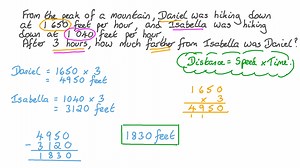 From the peak of a mountain, Daniel was hiking down
at 1650 feet per hour, and Isabella was hiking
down at 1040 feet per hour.
After 3 hours, how much farther from Isabella was Daniel?
Distance = Speed × Time.
Daniel = 1650 × 3
= 4950 feet
Isabella = 1040 × 3
= 3120 feet
1650
× 3
4950
1 1
4950
- 3120
1830
1830 feet